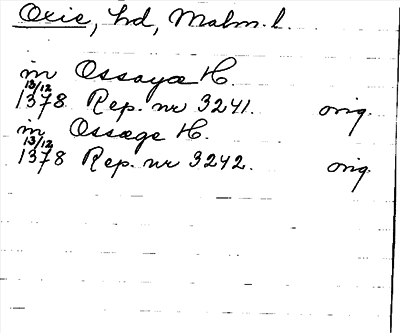 Oxie, hd, Malm. l.
m Ossaya H.
13/12
1378 Rep. nr 3241. orig.
m Ossage H.
13/12
1378 Rep. nr 3242. orig.